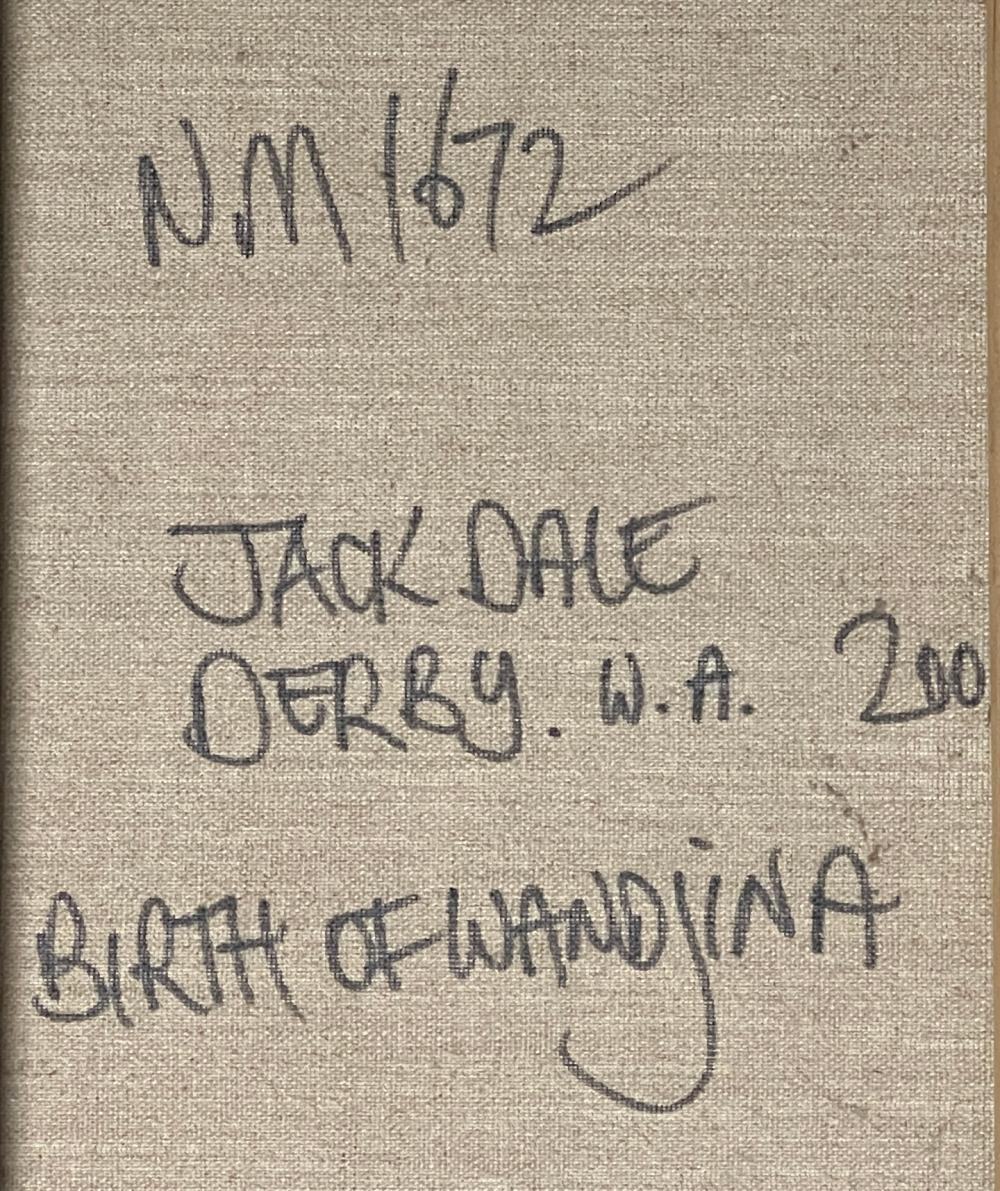 N.M 1672
JACK DALE
DERBY. W.A. 200
BIRTH OF WANDJINA